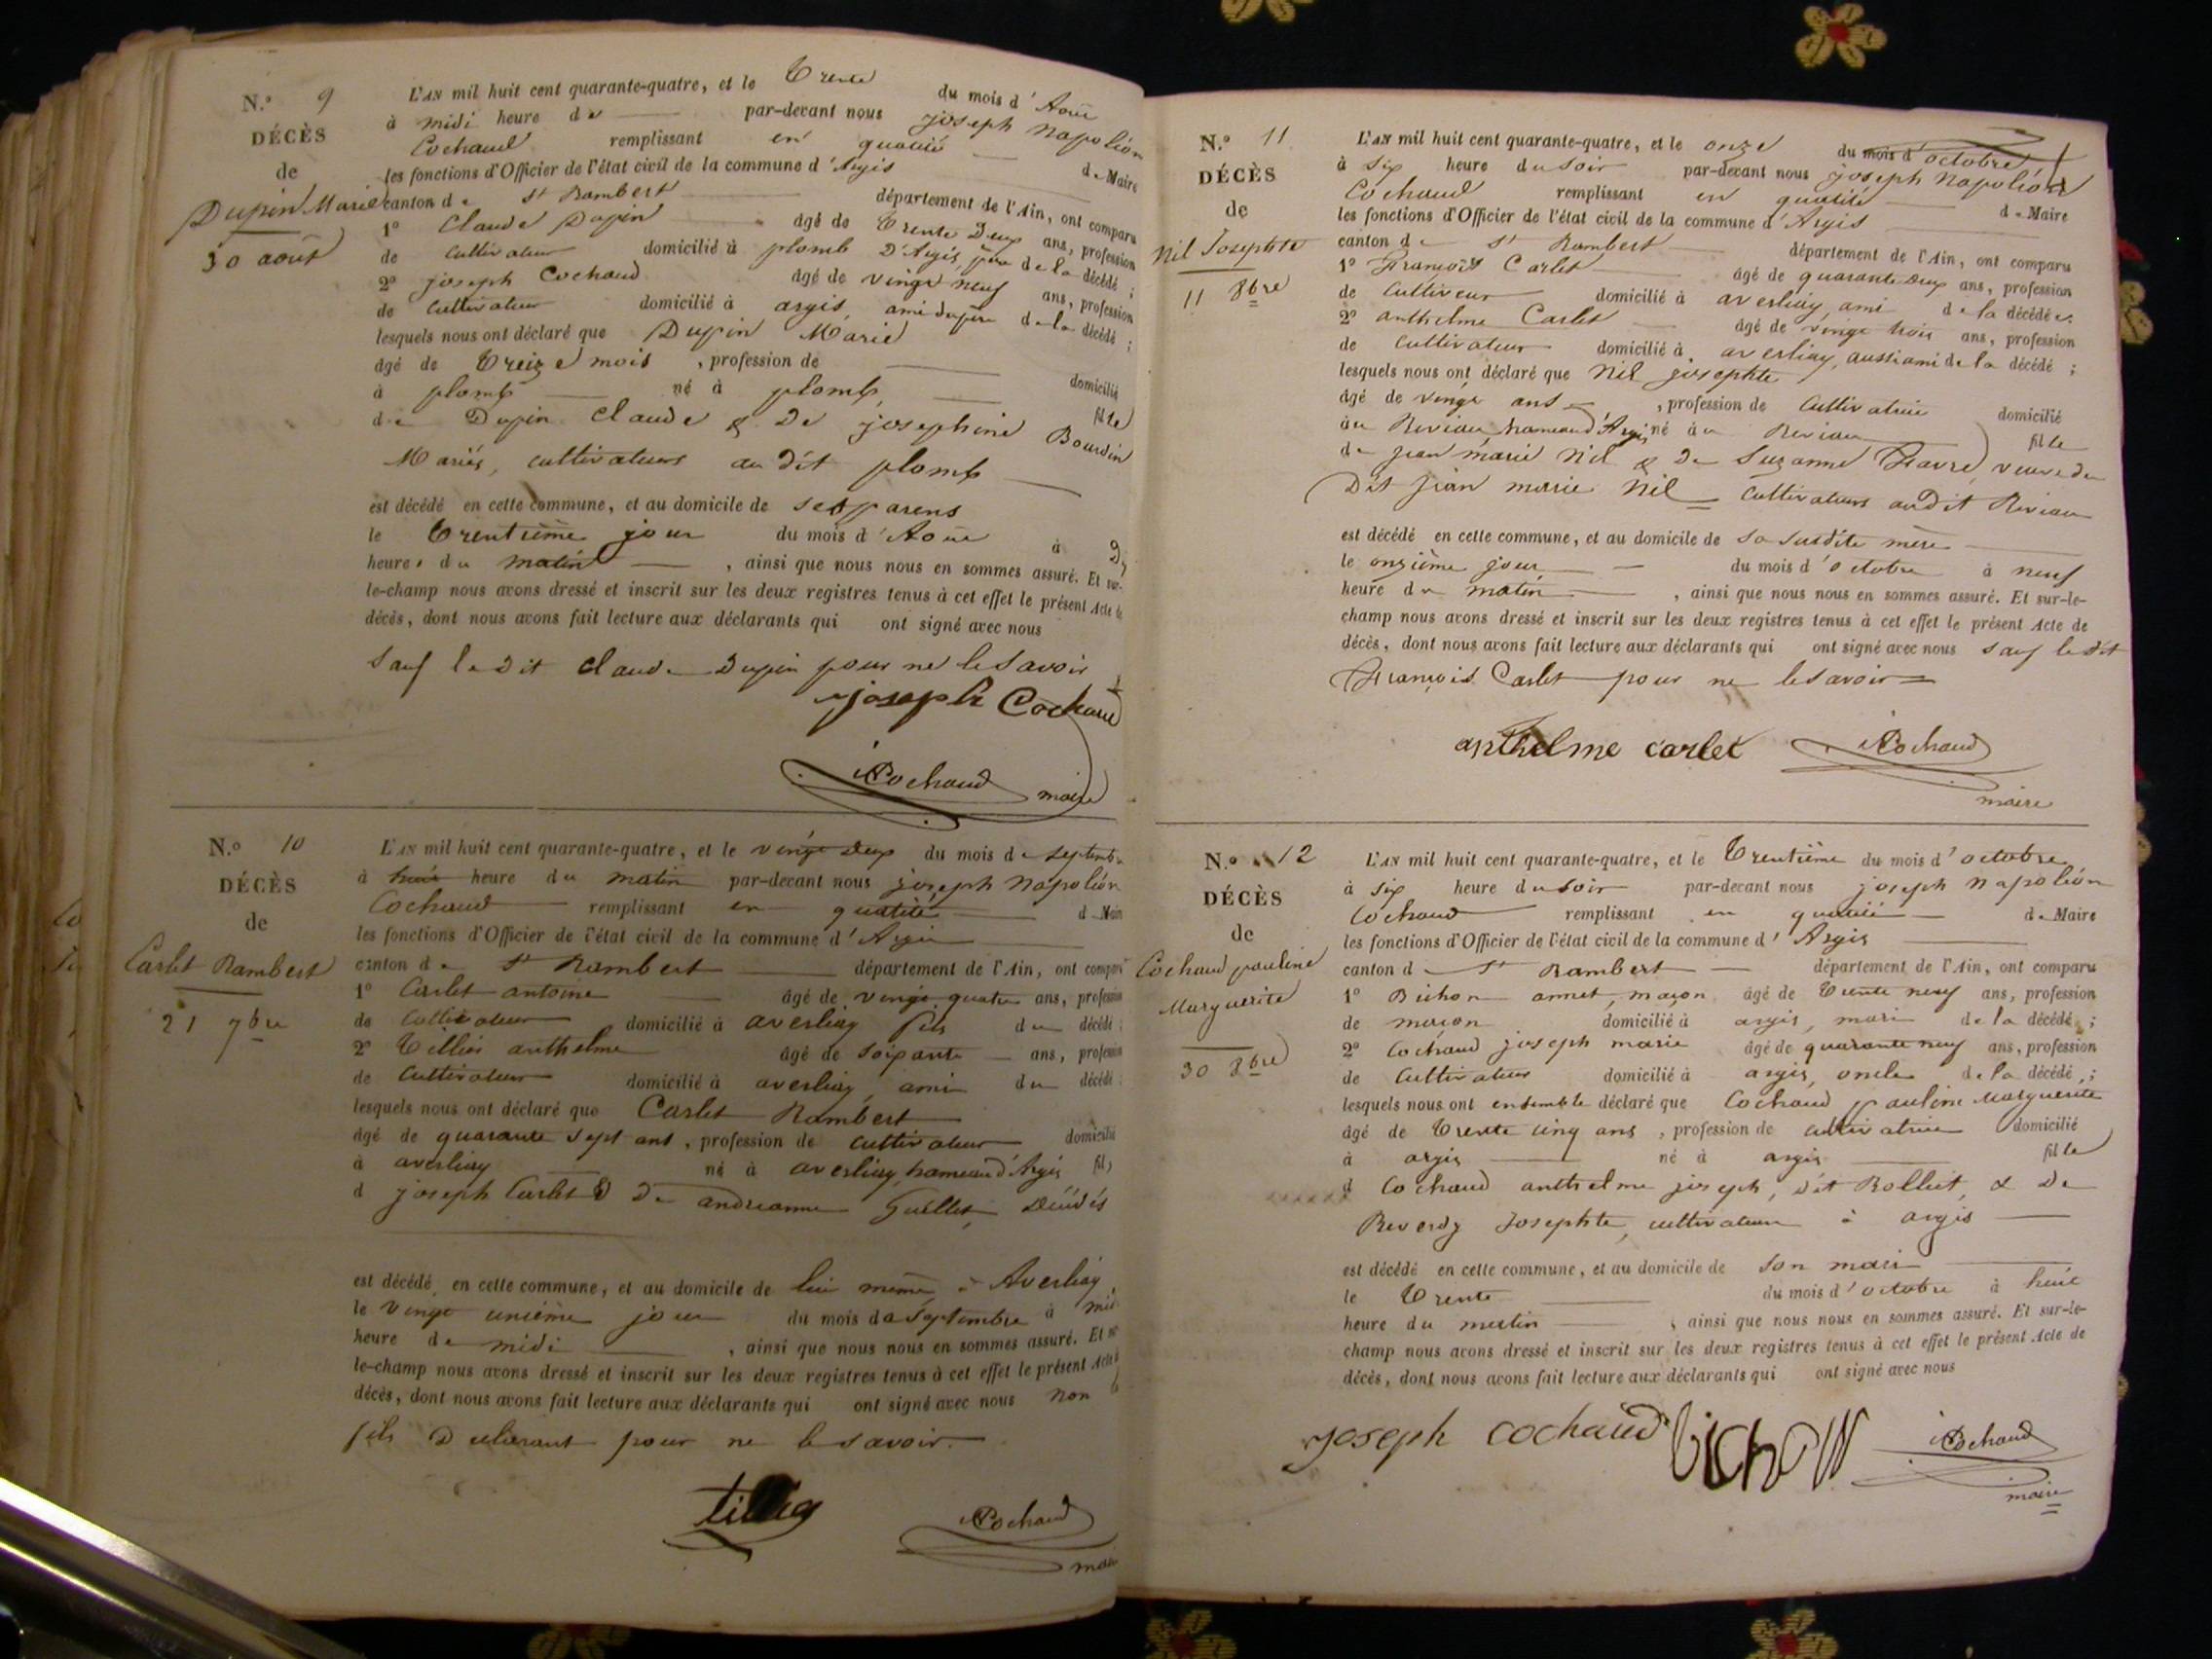 N.º 9
DÉCÈS
de
Dupin Marie
30 août
L'AN mil huit cent quarante-quatre, et le Trente du mois d'Aout
à midi heure de par-devant nous joseph Napoléon
Cochaud remplissant en qualité de Maire
les fonctions d'Officier de l'état civil de la commune d'Argis
canton de St Rambert département de l'Ain, ont comparu
1º Claude Dupin âgé de Trente Deux ans, profession
de Cultivateur domicilié à plomb D'Argis, père de la décédé ;
2º joseph Cochaud âgé de vingt neuf ans, profession
de Cultivateur domicilié à argis, ami du père de la décédé ;
lesquels nous ont déclaré que Dupin Marie
âgé de Treize mois , profession de domicilié
à plomb né à plomb, fille
de Dupin Claude & De josephine Bourdin
Mariés, cultivateurs au dit plomb
est décédé en cette commune, et au domicile de ses parens
le Trentième jour du mois d'Aout à 9
heures du matin , ainsi que nous nous en sommes assuré. Et sur-
le-champ nous avons dressé et inscrit sur les deux registres tenus à cet effet le présent Acte de
décès, dont nous avons fait lecture aux déclarants qui ont signé avec nous
Sauf le Dit Claude Dupin pour ne le Savoir
joseph Cochaud
Cochaud maire
N.º 10
DÉCÈS
de
Carlet Rambert
21 7bre
L'AN mil huit cent quarante-quatre, et le vingt deux du mois de Septembre
à huit heure du matin par-devant nous joseph Napoléon
Cochaud remplissant en qualité de Maire
les fonctions d'Officier de l'état civil de la commune d'Argis
canton de St Rambert département de l'Ain, ont comparu
1º Carlet antoine âgé de vingt quatre ans, profession
de Cultivateur domicilié à averliay fils du décédé ;
2º Tillier anthelme âgé de Soixante ans, profession
de Cultivateur domicilié à averliay, ami du décédé ;
lesquels nous ont déclaré que Carlet Rambert
âgé de quarante sept ans, profession de Cultivateur domicilié
à averliay né à averliay hameau d'Argis fils
d joseph Carlet & De andréanne Guillet, Décédés
est décédé en cette commune, et au domicile de lui même, à Averliay,
le vingt unième jour du mois de Septembre à
heure de midi , ainsi que nous nous en sommes assuré. Et sur-
le-champ nous avons dressé et inscrit sur les deux registres tenus à cet effet le présent Acte de
décès, dont nous avons fait lecture aux déclarants qui ont signé avec nous non le
fils Déclarant pour ne le savoir.
Cochaud
maire
N.º 11
DÉCÈS
de
Nil Josephte
11 8bre
L'AN mil huit cent quarante-quatre, et le onze du mois d'octobre
à Six heure du Soir par-devant nous joseph Napoléon
Cochaud remplissant en qualité de Maire
les fonctions d'Officier de l'état civil de la commune d'Argis
canton de St Rambert département de l'Ain, ont comparu
1º François Carlet âgé de quarante deux ans, profession
de Cultiveur domicilié à averliay, ami de la décédée
2º anthelme Carlet âgé de vingt trois ans, profession
de Cultivateur domicilié à averliay, aussi ami de la décédé ;
lesquels nous ont déclaré que Nil josephte
âgé de vingt ans , profession de Cultivatrice domicilié
au Reviau, hameau d'Argis né au Reviau fille
de jean marie Nil & De Suzanne Favre, veuve du
Dit jean marie Nil cultivateurs audit Reviau
est décédé en cette commune, et au domicile de Sa Susdite mère
le onzième jour du mois d'octobre à neuf
heure du matin , ainsi que nous nous en sommes assuré. Et sur-le-
champ nous avons dressé et inscrit sur les deux registres tenus à cet effet le présent Acte de
décès, dont nous avons fait lecture aux déclarants qui ont signé avec nous Sauf le dit
François Carlet pour ne le Savoir
anthelme carlet Cochaud
maire
N.º 12
DÉCÈS
de
Cochaud pauline
Marguerite
30 8bre
L'AN mil huit cent quarante-quatre, et le Trentième du mois d'octobre
à Six heure du Soir par-devant nous joseph Napoléon
Cochaud remplissant en qualité de Maire
les fonctions d'Officier de l'état civil de la commune d'Argis
canton d St Rambert département de l'Ain, ont comparu
1º Bichon annet, maçon, âgé de Trente neuf ans, profession
de maçon domicilié à argis, mari de la décédé ;
2º Cochaud joseph marie âgé de quarante neuf ans, profession
de Cultivateur domicilié à argis, oncle de la décédé ;
lesquels nous ont ensemble déclaré que Cochaud pauline Marguerite
âgé de Trente cinq ans , profession de cultivatrice domicilié
à argis né à argis fille
d Cochaud anthelme joseph, dit Rolliet, & De
Reverdy Josephte, cultivateurs à argis
est décédé en cette commune, et au domicile de Son mari
le Trente du mois d'octobre à huit
heure du matin , ainsi que nous nous en sommes assuré. Et sur-le-
champ nous avons dressé et inscrit sur les deux registres tenus à cet effet le présent Acte de
décès, dont nous avons fait lecture aux déclarants qui ont signé avec nous
joseph cochaud bichon Cochaud
maire